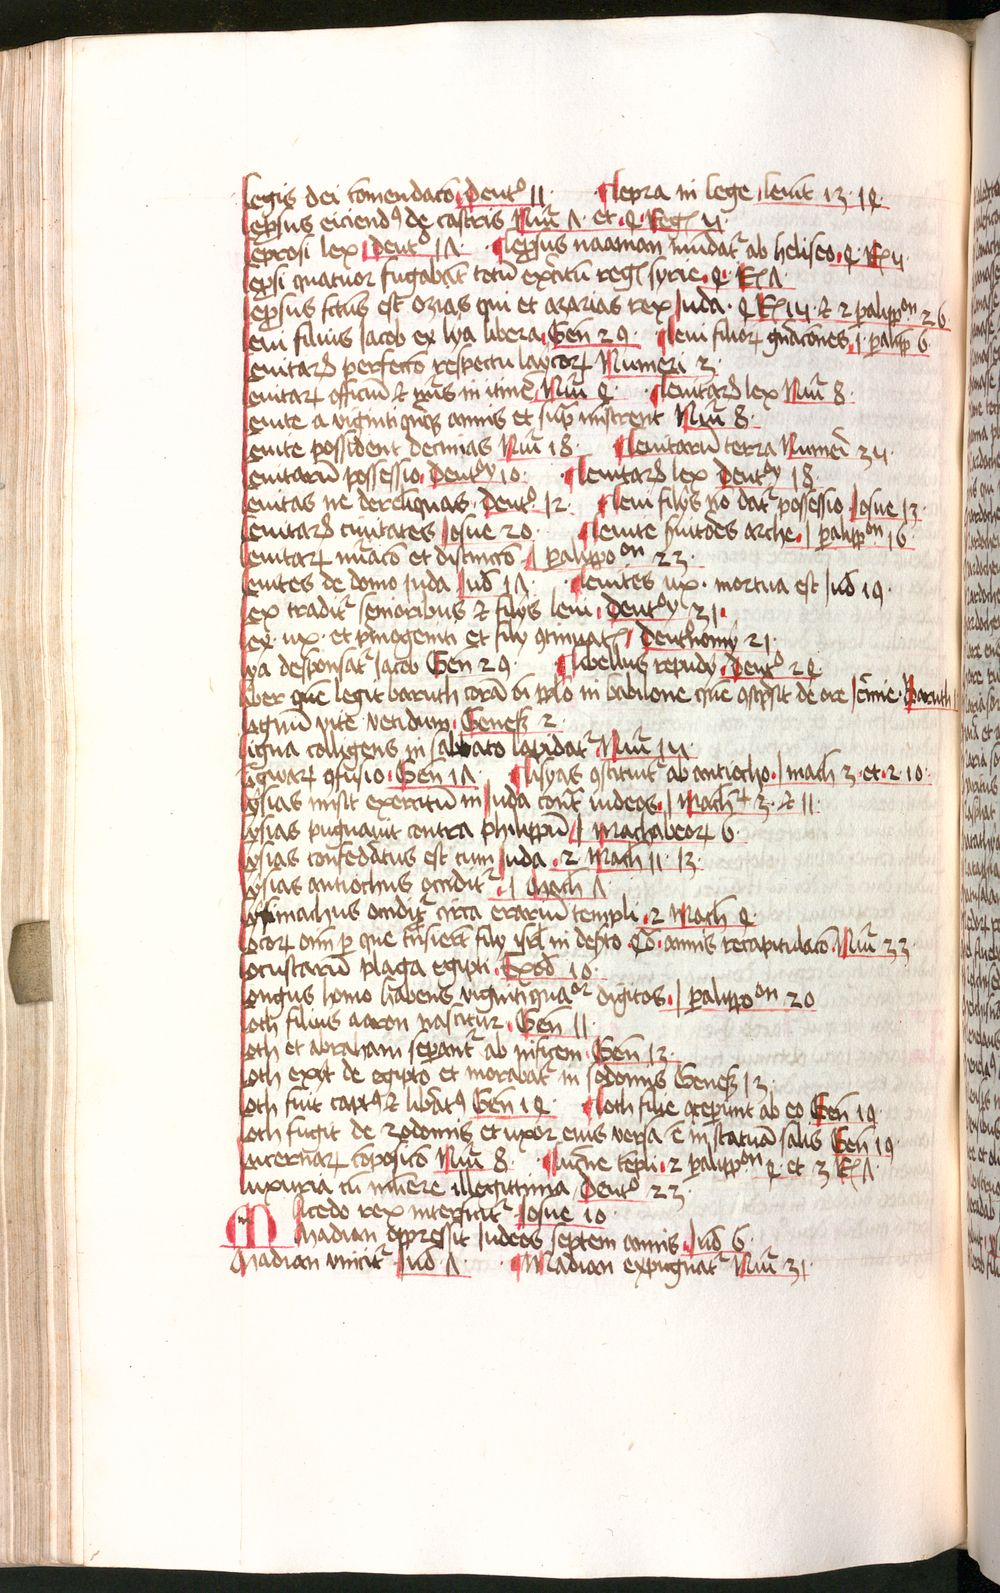 legis dei comendacō Deutᵒ 11 · lepra in lege leuit 13 · 14
lep̄sus eiciendꝰ de castris Nūī 5 et 4 Regꝭ
leprosi lex Deutᵒ · lep̄sus naaman mūdatᷣ ab heliseo · 4 Rꝭ 5
lep̄si quatuor fugabāt totū exc̄itū regꝭ syrie · 4 Rꝭ 7
lep̄sus fctus est ozias qui et azarias rex Juda · 4 Rꝭ 15 · et 2 palippᵒⁿ 26
leui filius Jacob ex lya libera Gen̄ 29 · leui filioꝝ gn̄acōnes · 1 palipp 6
leuitaꝝ perfecto respectu laycoꝝ Numeri 3
leuitaꝝ officiū et in itinē Nūī 4 · leuitaꝝ lex Nūī 8
leuite a viginti quīqꝫ annis et sup̄ mīstrent Nūī 8
leuite possident decimas Nūī 18 · leuitarū terra Numeri 35
leuitarū possessio Deutᵒ 10 · leuitaꝝ lex Deutᵒ 18
leuitas ne derelīquas Deutᵒ 12 · leui filijs nō datᷣ possessio Josue 13
leuitaꝝ ciuitates Josue 20 · leuite arche · 1 palippᵒⁿ 16
leuitaꝝ et distinctō 1 palippoᵒⁿ 23
leuites de domo Juda Jud̄ 17 · leuites ux · mortua est Jud̄ 19
lex traditᷣ senioribus et filijs leui · Deutᵒ 31 ·
lex · ux · et p̄mogeniti et filij Deutᵒnomij 21 ·
lya desponsatᷣ Jacob Gen 29 · libellus repudij Deutᵒ 24
liber quē legit baruch corā oī pplo in babilone quē de ore Jer̄mie · Baruch 1
lignum vite vetidum Geneꝭ 2 ·
ligna colligens in sabbato lapidatᷣ Nūī 15
ligwaꝝ ꝯfusio · Gen̄ 11 · lisyas ꝯstituitᷣ ab antiocho · 1 mach 3 et 2 · 10 ·
lysias misit exercitum in Juda contᷓ iudeos · 1 Mach 3 · et 11 ·
lysias pugnauit contra philippū 1 Machabeoꝝ 6 ·
lysias confedatus est cum Juda · 2 Mach 11 · 13 ·
lysias antiochus occiditᷣ · 1 Mach 7
lysimachus occiditᷣ circa erarium templi · 2 Mach 4
locoꝝ oīm p̄ que trāsierūt filij isrl in desᵗo recapitulacō Nūī 33
locustarū plaga egipti · Exod 10 ·
longus homo habens vigintiquaᵒʳ digitos · 1 palippoᵒⁿ 20
loth filius aaron nascitur Gen̄ 11
loth et abraham sep̄antᷣ ab inficem Gen̄ 13 ·
loth exijt de egipto et morabatᷣ in sodomis Geneꝭ 13
loth fuit captꝰ et libatꝰ Gen̄ 14 · loth filie ꝯcep̄unt ab eo Gen̄ 19
loth fugit de zodomis et uxor eius versa ē in statuā salis Gen̄ 19
lucernaꝝ cōpositō Nūī 8 · lucerne tēpli · 2 palippᵒⁿ 4 et 3 Rꝭ 7 ·
luxuria cū mulere illegittima Deutᵒ 23
Macedo rex interficitᷣ Josue 10
Madian oppressit Judeos septem annis · Jud̄ 6 ·
Madian vincitᷣ Jud̄ 7 · Madian expugnatᷣ Nūī 31 ·